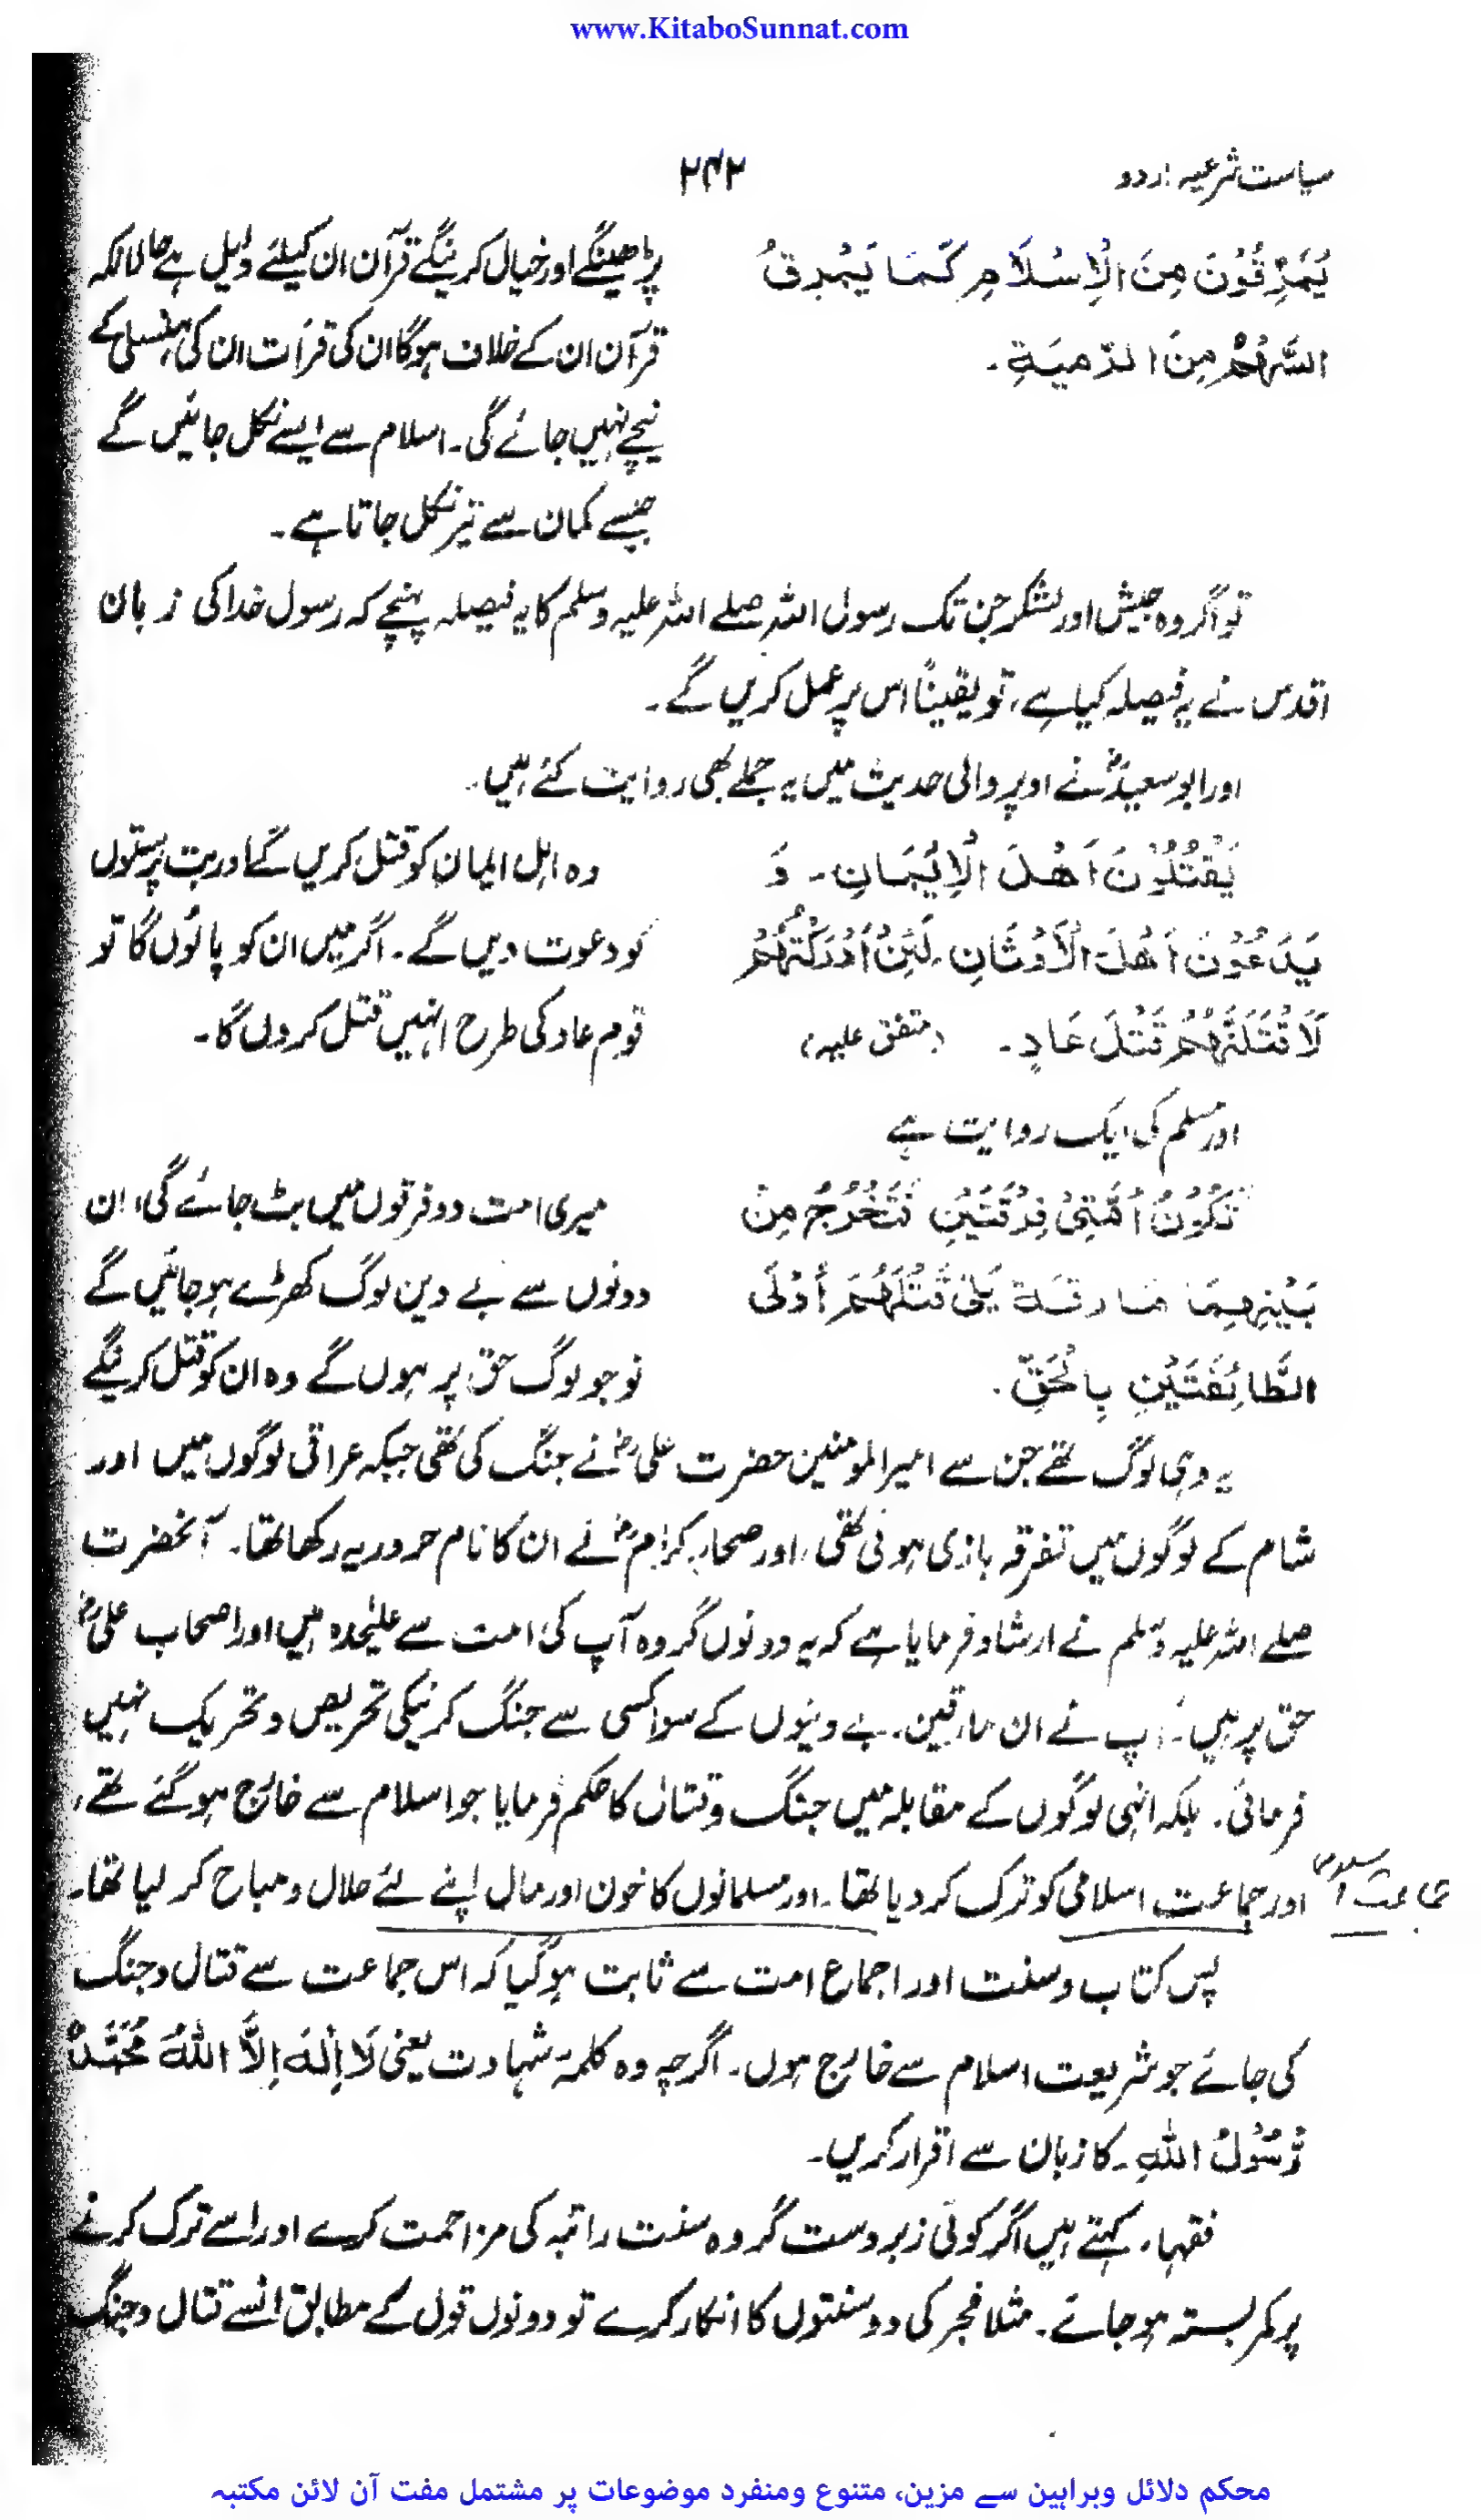 www.KitaboSunnat.com
سیاست شرعیہ اردو
۲۴۲
یَمْرِقُوْنَ مِنَ الْاِسْلَامِ كَمَا یَمْرِقُ
السَّهْمُ مِنَ الرَّمِیَةِ۔
پڑھینگے اور خیال کرینگے قرآن ان کیلئے دلیل ہے حالانکہ
قرآن ان کے خلاف ہوگا ان کی قرأت ان کی ہنسلی کے
نیچے نہیں جائے گی۔ اسلام سے ایسے نکل جائیں گے
جیسے کمان سے تیر نکل جاتا ہے۔
تو اگر وہ جیش اور لشکر جن تک رسول اللہ صلے اللہ علیہ وسلم کا یہ فیصلہ پہنچے کہ رسول خدا کی زبان
اقدس نے یہ فیصلہ کیا ہے، تو یقیناً اس پر عمل کریں گے۔
اور ابو سعیدؓ نے اوپر والی حدیث میں یہ جملے بھی روایت کئے ہیں۔
یَقْتُلُوْنَ اَهْلَ الْاِیْمَانِ۔ وَ
یَدَعُوْنَ اَهْلَ الْاَوْثَانِ۔ لَئِنْ اَدْرَكْتُهُمْ
لَاَ قْتُلَنَّهُمْ قَتْلَ عَادٍ۔ (متفق علیہ)
وہ اہل ایمان کو قتل کریں گے اور بت پرستوں
کو دعوت دیں گے۔ اگر میں ان کو پاؤں گا تو
قوم عاد کی طرح انہیں قتل کر دوں گا۔
اور مسلم کی ایک روایت ہے
تَكُوْنُ اُمَّتِیْ فِرْقَتَیْنِ فَتَخْرُجُ مِنْ
بَیْنِهِمَا مَارِقَة یَلِیْ قَتْلَهُمْ اَوْلَی
الطَّائِفَتَیْنِ بِالْحَقِّ۔
میری امت دو فرقوں میں بٹ جائے گی، ان
دونوں سے بے دین لوگ کھڑے ہو جائیں گے
تو جو لوگ حق پر ہوں گے وہ ان کو قتل کرینگے
یہ وہی لوگ تھے جن سے امیر المومنین حضرت علیؓ نے جنگ کی تھی جبکہ عراقی لوگوں میں اور
شام کے لوگوں میں تفرقہ بازی ہوئی تھی، اور صحابہ کرامؓ نے ان کا نام حروریہ رکھا تھا۔ آنحضرت
صلے اللہ علیہ وسلم نے ارشاد فرمایا ہے کہ یہ دونوں گروہ آپ کی امت سے علیٰحدہ ہیں اور اصحاب علیؓ
حق پر ہیں۔ آپ نے ان مارقین۔ بے دینوں کے سوا کسی سے جنگ کرنیکی تحریص و تحریک نہیں
فرمائی۔ بلکہ انہی لوگوں کے مقابلہ میں جنگ و قتال کا حکم فرمایا جو اسلام سے خارج ہو گئے تھے،
اور جماعت اسلامی کو ترک کر دیا تھا۔ اور مسلمانوں کا خون اور مال اپنے لئے حلال و مباح کر لیا تھا۔
پس کتاب و سنت اور اجماع امت سے ثابت ہو گیا کہ اس جماعت سے قتال و جنگ
کی جائے جو شریعت اسلام سے خارج ہوں۔ اگرچہ وہ کلمۂ شہادت یعنی لَا اِلٰهَ اِلَّا اللهُ مُحَمَّدٌ
رَّسُوْلُ اللهِ۔ کا زبان سے اقرار کریں۔
فقہاء کہتے ہیں اگر کوئی زبردست گروہ سنت راتبہ کی مزاحمت کرے اور اسے ترک کرنے
پر کمر بستہ ہو جائے۔ مثلا فجر کی دو سنتوں کا انکار کرے تو دونوں قول کے مطابق انسے قتال و جنگ
محکم دلائل وبراہین سے مزین، متنوع ومنفرد موضوعات پر مشتمل مفت آن لائن مکتبہ